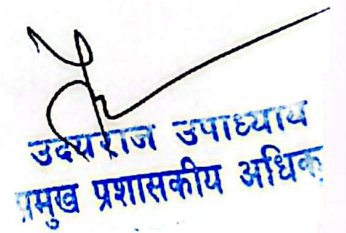 उदयराज उपाध्याय
प्रमुख प्रशासकीय अधिकृ